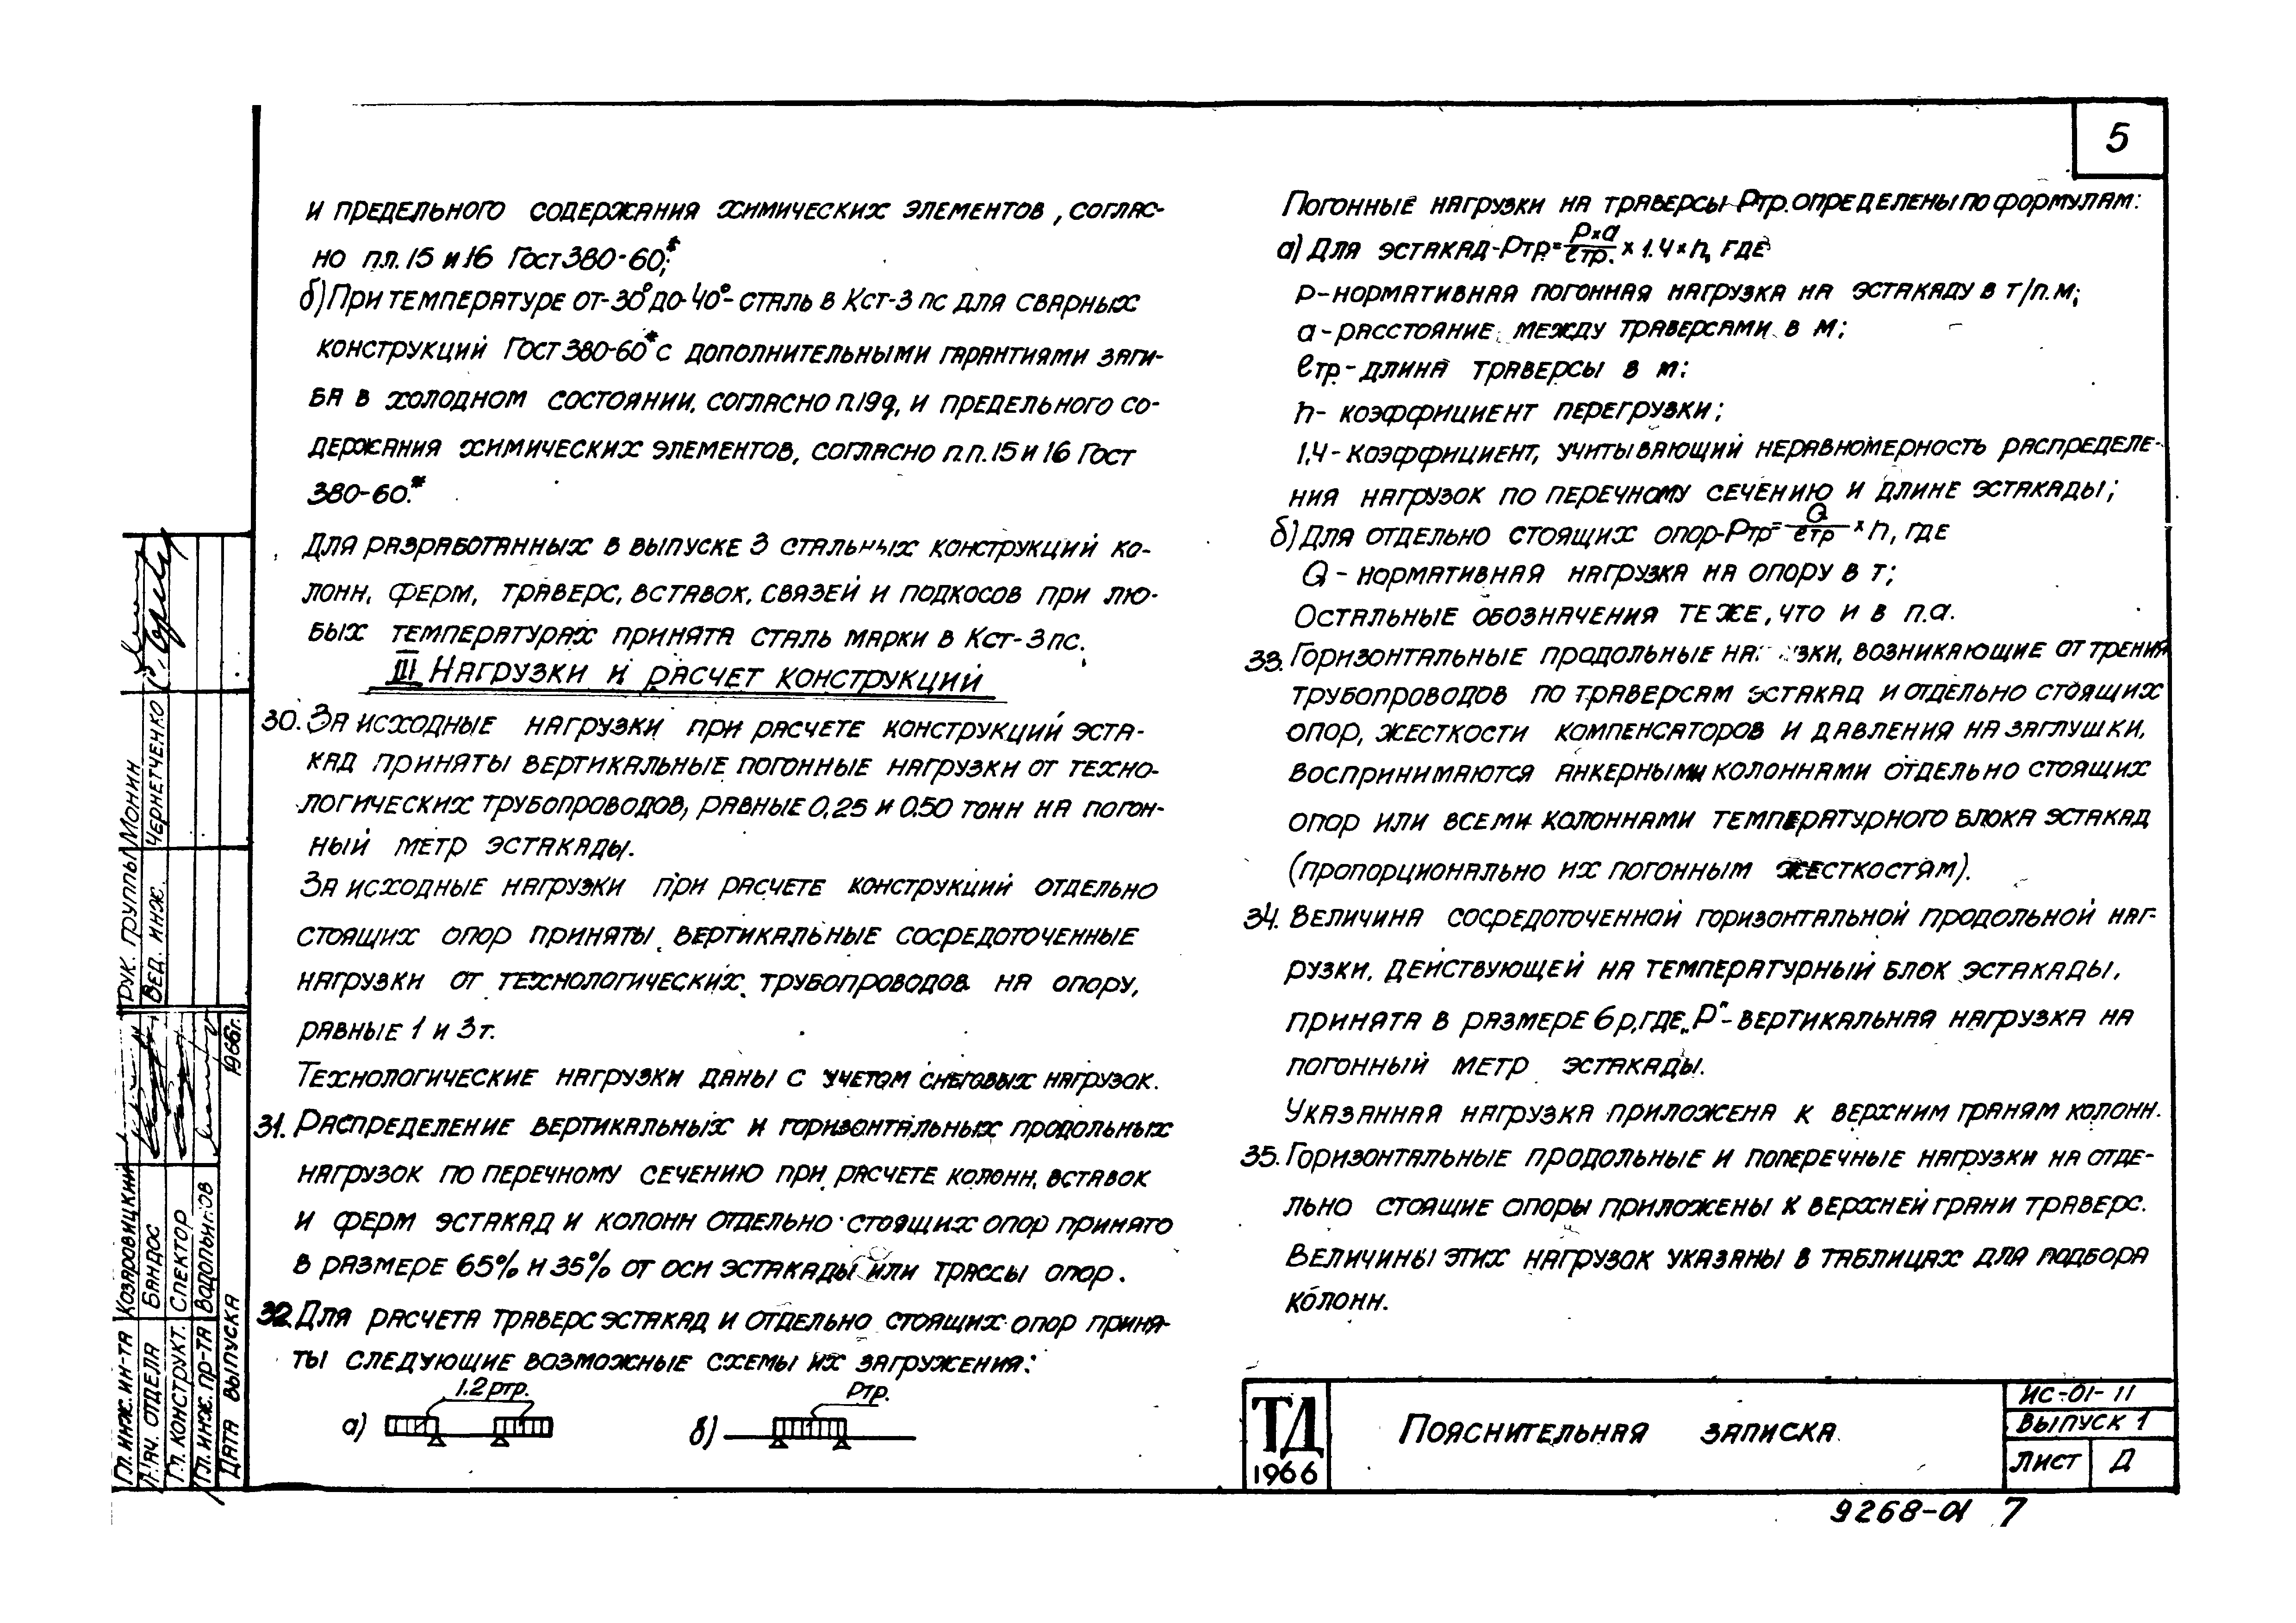 5
и предельного содержания химических элементов, соглас-
но п.п. 15 и 16 Гост 380-60*;
б) При температуре от -30° до -40° - сталь В Кст-3 пс для сварных
конструкций Гост 380-60* с дополнительными гарантиями заги-
ба в холодном состоянии, согласно п.19д, и предельного со-
держания химических элементов, согласно п.п. 15 и 16 Гост
380-60.*
Для разработанных в выпуске 3 стальных конструкций ко-
лонн, ферм, траверс, вставок, связей и подкосов при лю-
бых температурах принята сталь марки В Кст-3пс.
III Нагрузки и расчет конструкций
30. За исходные нагрузки при расчете конструкций эста-
кад приняты вертикальные погонные нагрузки от техно-
логических трубопроводов, равные 0,25 и 0.50 тонн на погон-
ный метр эстакады.
За исходные нагрузки при расчете конструкций отдельно
стоящих опор приняты вертикальные сосредоточенные
нагрузки от технологических трубопроводов на опору,
равные 1 и 3 т.
Технологические нагрузки даны с учетом снеговых нагрузок.
31. Распределение вертикальных и горизонтальных продольных
нагрузок по перечному сечению при расчете колонн, вставок
и ферм эстакад и колонн отдельно стоящих опор принято
в размере 65% и 35% от оси эстакады или трассы опор.
32. Для расчета траверс эстакад и отдельно стоящих опор приня-
ты следующие возможные схемы их загружения:
1.2 pтр.
Pтр.
а)
б)
Погонные нагрузки на траверсы Pтр. определены по формулам:
а) Для эстакад - Pтр. = P×a / ℓтр. × 1.4 × n, где
p - нормативная погонная нагрузка на эстакаду в т/п.м;
a - расстояние между траверсами в м;
ℓтр. - длина траверсы в м;
n - коэффициент перегрузки;
1,4 - коэффициент, учитывающий неравномерность распределе-
ния нагрузок по перечному сечению и длине эстакады;
б) Для отдельно стоящих опор - Pтр = Q / ℓтр × n, где
Q - нормативная нагрузка на опору в т;
Остальные обозначения те же, что и в п.а.
33. Горизонтальные продольные нагрузки, возникающие от трения
трубопроводов по траверсам эстакад и отдельно стоящих
опор, жесткости компенсаторов и давления на заглушки,
воспринимаются анкерными колоннами отдельно стоящих
опор или всеми колоннами температурного блока эстакад
(пропорционально их погонным жесткостям).
34. Величина сосредоточенной горизонтальной продольной наг-
рузки, действующей на температурный блок эстакады,
принята в размере 6p, где „P" - вертикальная нагрузка на
погонный метр эстакады.
Указанная нагрузка приложена к верхним граням колонн.
35. Горизонтальные продольные и поперечные нагрузки на отде-
льно стоящие опоры приложены к верхней грани траверс.
Величины этих нагрузок указаны в таблицах для подбора
колонн.
ТД
1966
Пояснительная записка
ИС-01-11
Выпуск 1
Лист Д
9268-01 7
Рук. группы Монин
Вед. инж. Чернетченко
Гл. инж. ин-та Козаровицкий
Нач. отдела Бандос
Гл. конструкт. Спектор
Гл. инж. пр-та Водопьянов
Дата выпуска 1966г.